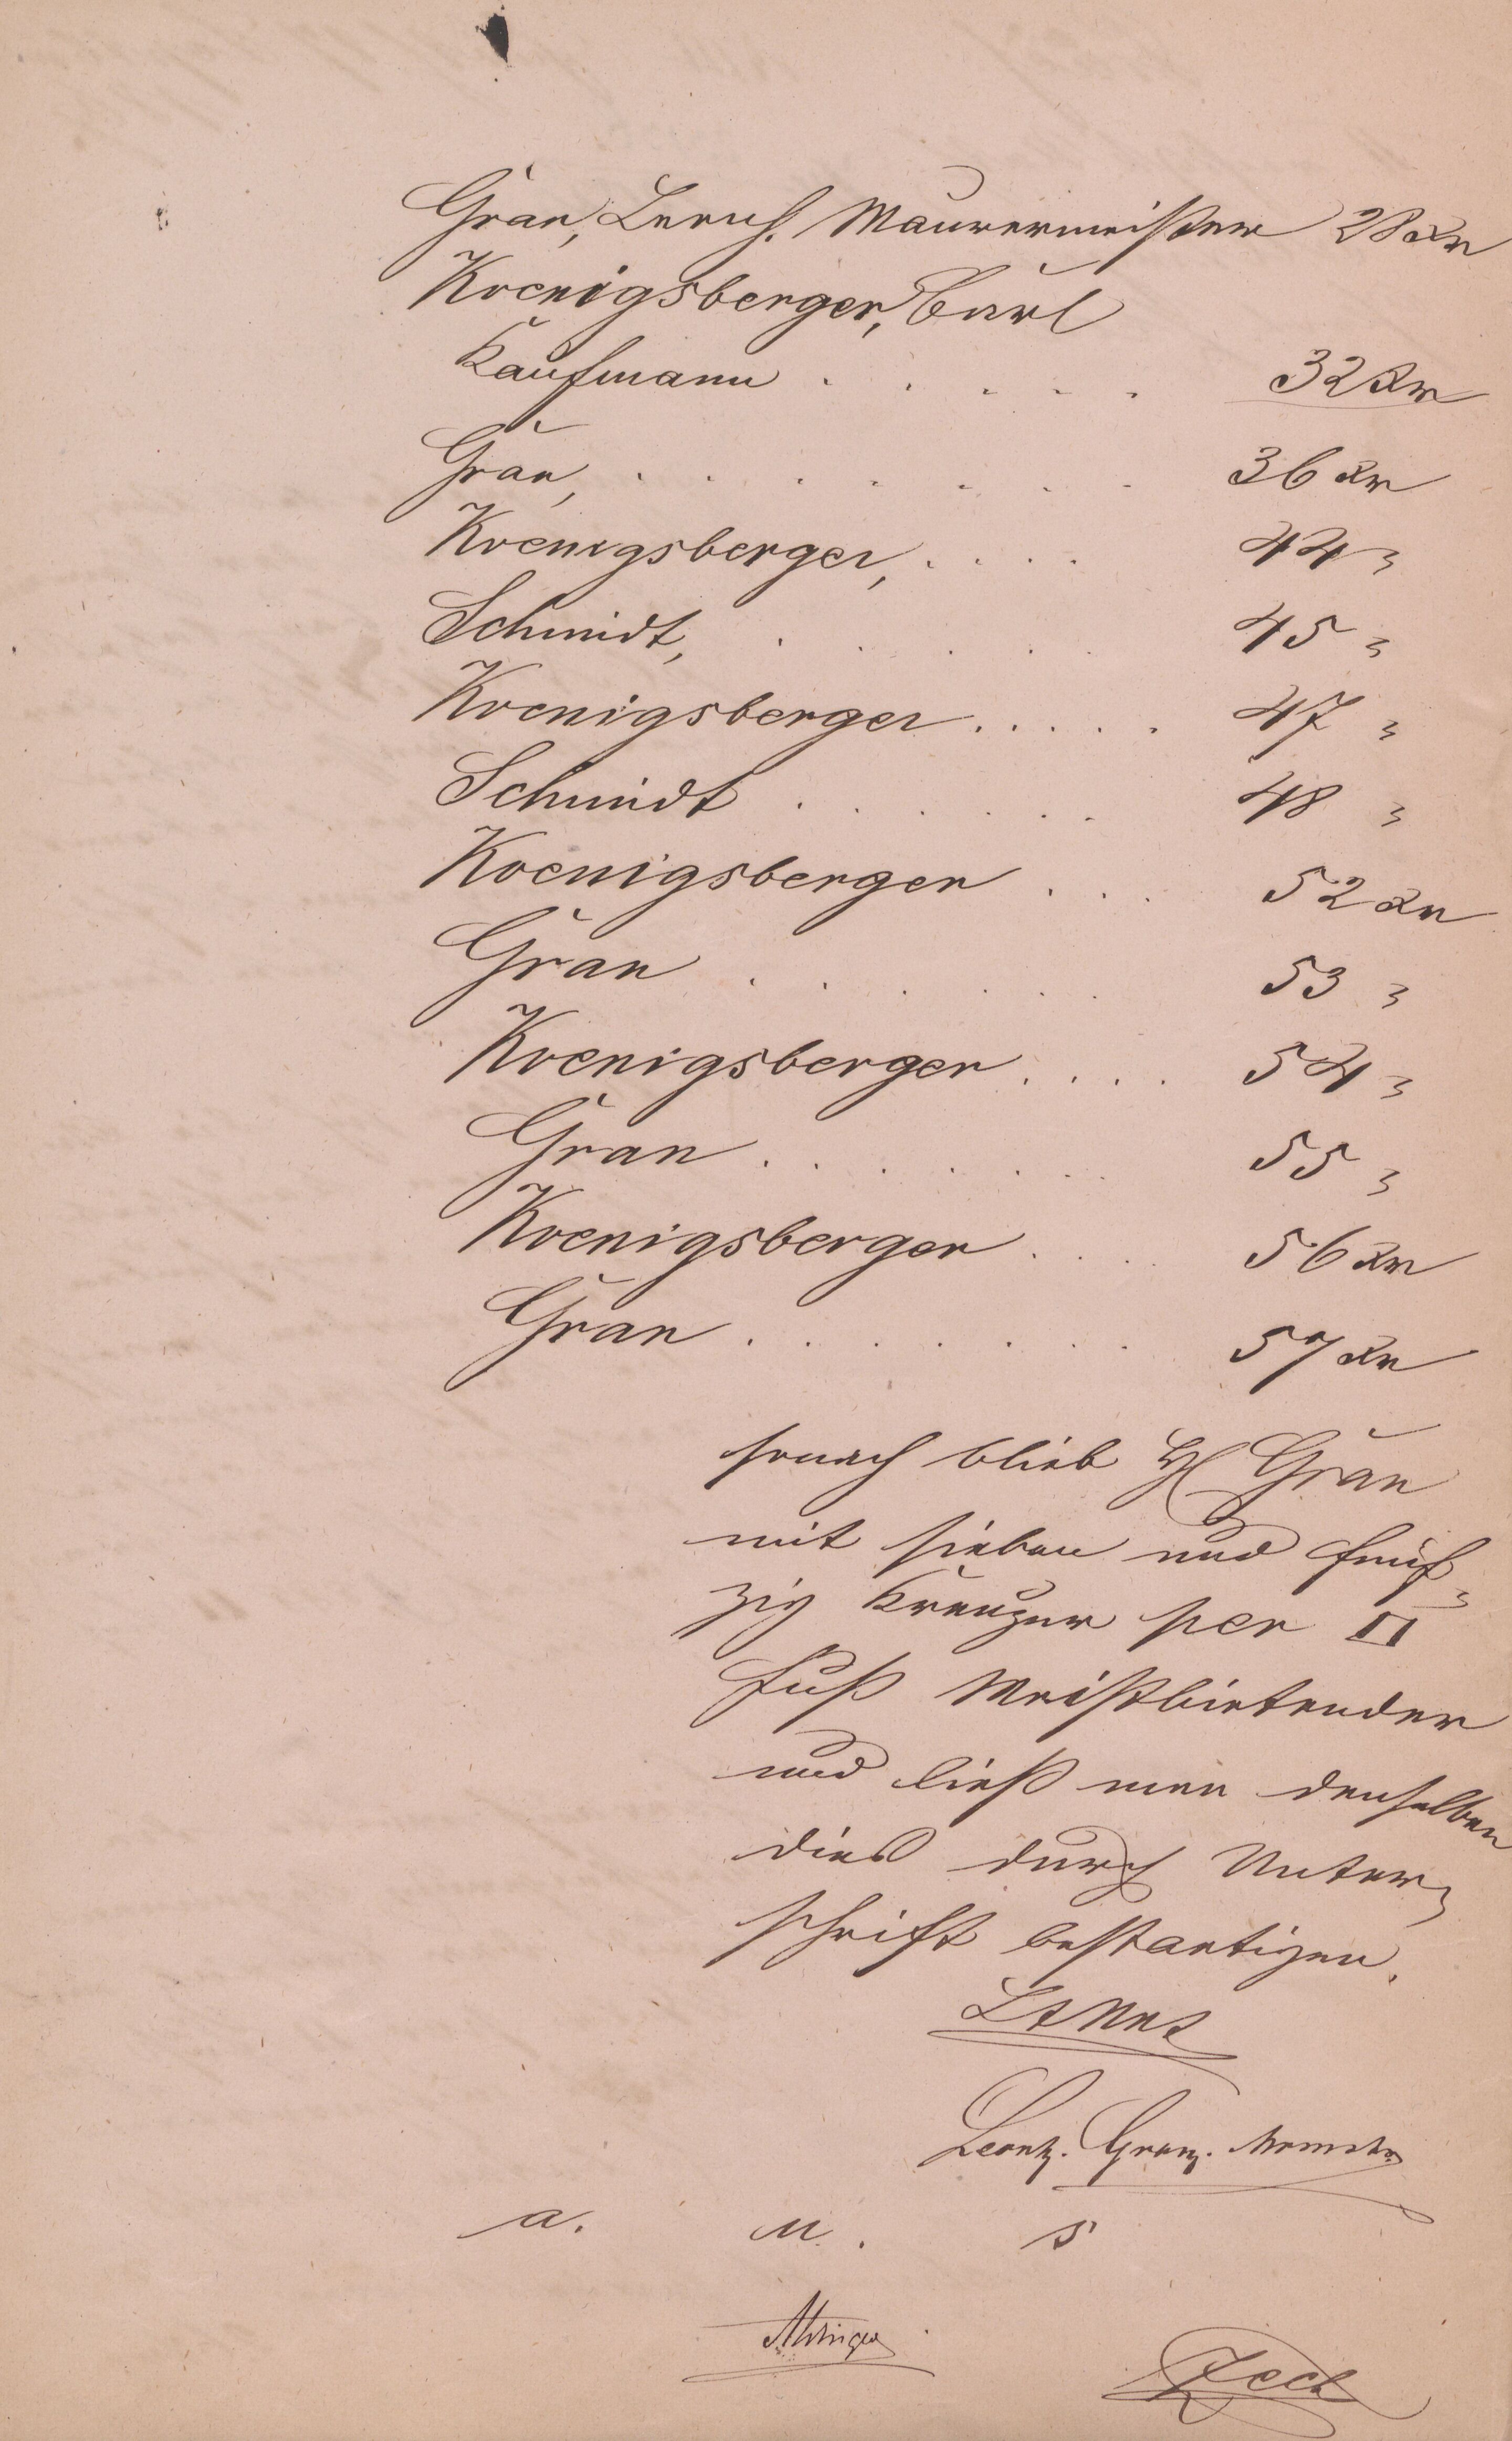 Grau, Leonh. Maurermeister 28 Kr
Koenigsberger, Carl
Kaufmann . . . . . 32 Kr
Grau, . . . . . . . 36 Kr
Koenigsberger, . . . . 44 "
Schmidt, . . . . . 45 "
Koenigsberger . . . . . 47 "
Schmidt . . . . . . 48 "
Koenigsberger . . . 52 Kr
Grau . . . . . . 53 "
Koenigsberger . . . . 54 "
Grau . . . . . . . 55 "
Koenigsberger . . . 56 Kr
Grau . . . . . . . 57 Kr
sonach blieb H Grau
mit sieben und fünf-
zig Kreuzer per □
Fuß Meistbietender
und ließ man denselben
dies durch Unter-
schrift bestaetigen.
Leonh. Grau.
a. u. s
Zech